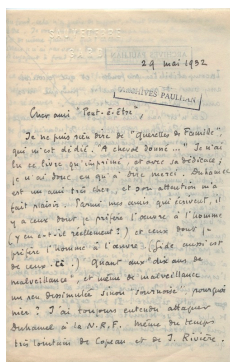 SAUVETERRE
ARCHIVES PAULHAN
29 mai 1932
ARCHIVES PAULHAN
Cher ami "Peut-Être",
Je ne puis rien dire de "Querelles de Famille",
qui m'est dédié. "A cheval donné..." Je n'ai
lu ce livre qu'imprimé, et avec sa dédicace ;
je n'ai donc eu qu'à dire merci. Duhamel
est un ami très cher, et son attention m'a
fait plaisir. Parmi mes amis qui écrivent, il
y a ceux dont je préfère l'œuvre à l'homme
(y en a-t-il réellement ?) et ceux dont je
préfère l'homme à l'œuvre. (Gide aussi est
de ceux-là.) Quant aux "dix ans de
malveillance", et même de malveillance
un peu dissimulée sinon "sournoise", pourquoi
nier ? J'ai toujours entendu attaquer
Duhamel à la N.R.F. même du temps
très lointain de Copeau et de J. Rivière.